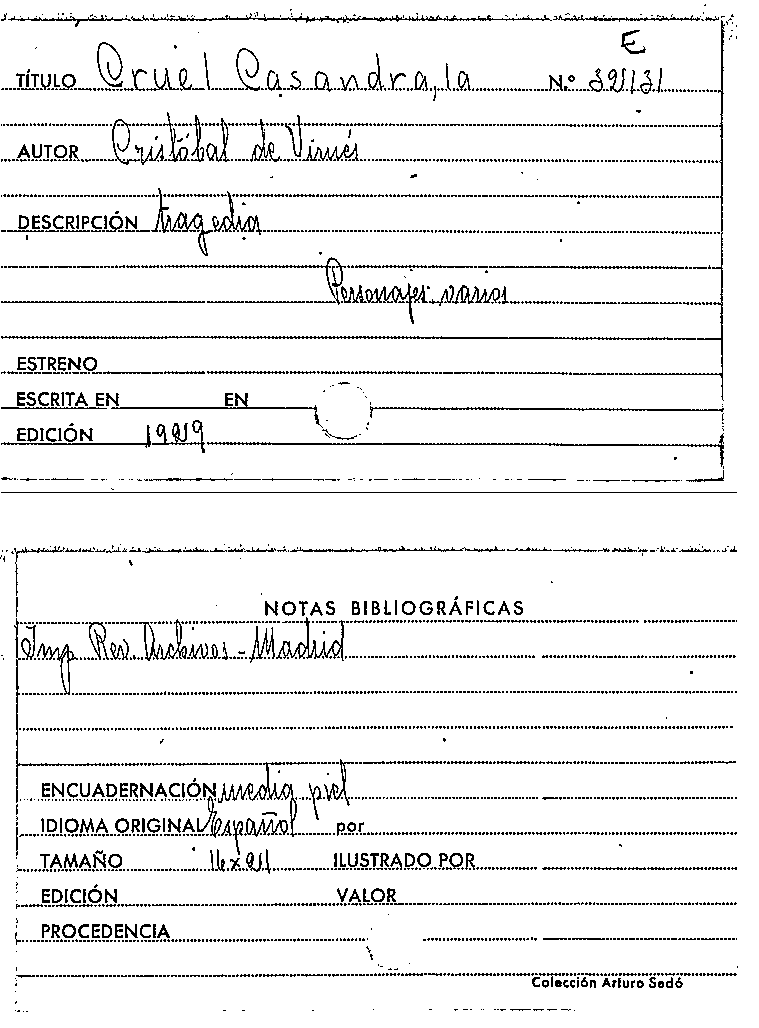 E
TÍTULO Cruel Casandra, la N.º 32131
AUTOR Cristóbal de Virués
DESCRIPCIÓN tragedia
Personajes: varios
ESTRENO
ESCRITA EN EN
EDICIÓN 1929
NOTAS BIBLIOGRÁFICAS
Imp Rev. Archivos - Madrid
ENCUADERNACIÓN media piel
IDIOMA ORIGINAL Español por
TAMAÑO 16x21 ILUSTRADO POR
EDICIÓN VALOR
PROCEDENCIA
Colección Arturo Sedó